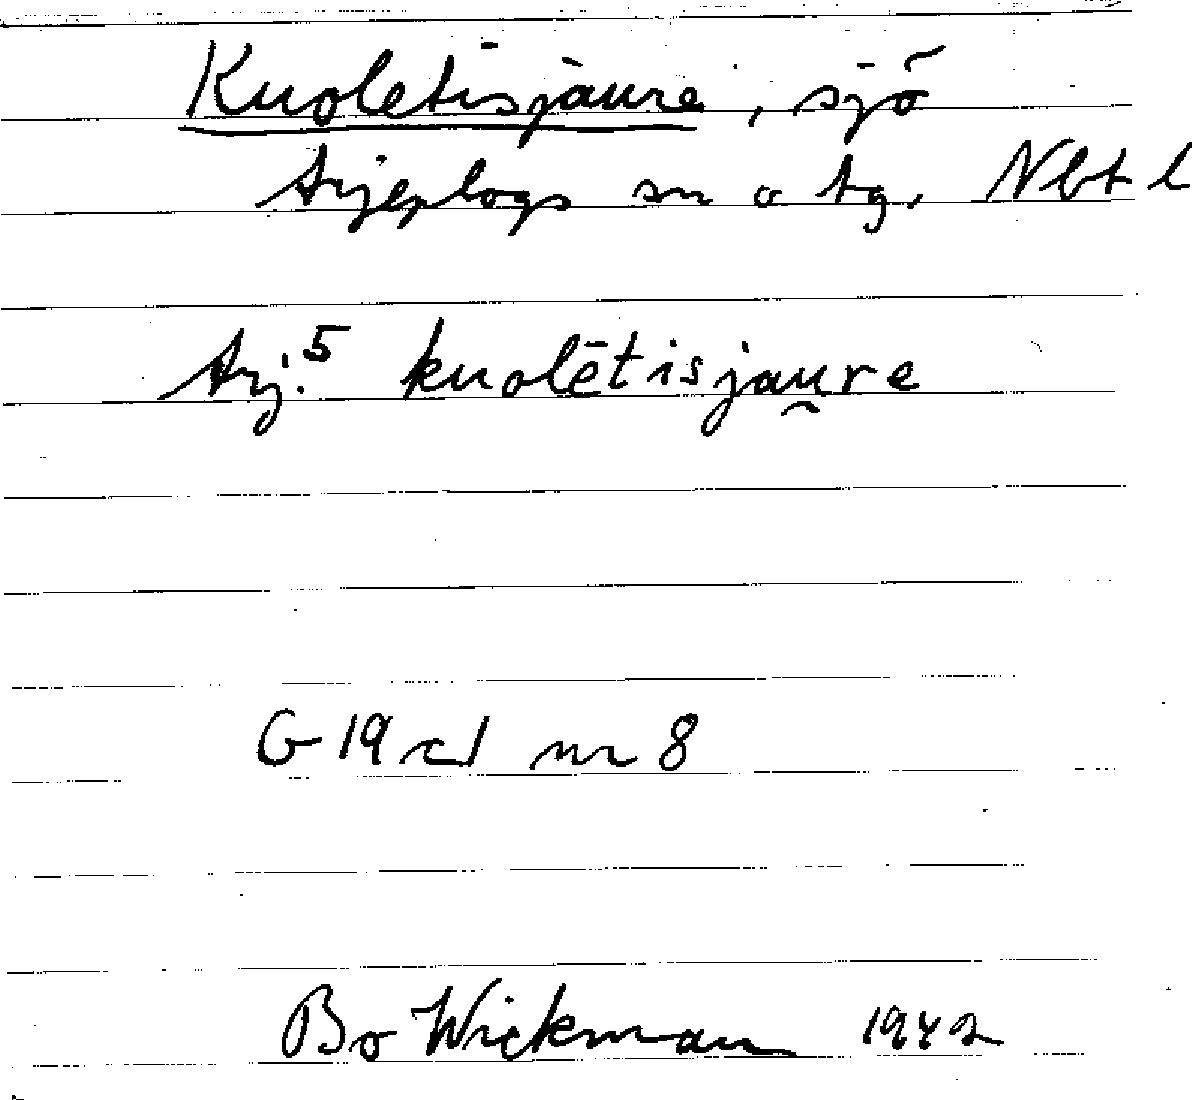 Kuoletisjaure, sjö
Arjeplogs sn o tg, Nbt l
Arj.⁵ kuolētisjau̯re
G 19 cl nr 8
Bo Wickman 1942